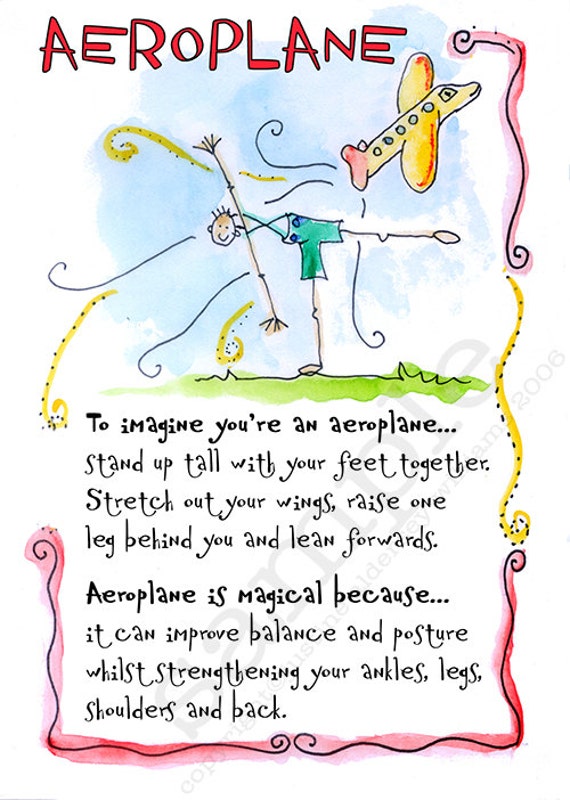 AEROPLANE
To imagine you're an aeroplane...
stand up tall with your feet together.
Stretch out your wings, raise one
leg behind you and lean forwards.
Aeroplane is magical because...
it can improve balance and posture
whilst strengthening your ankles, legs,
shoulders and back.
sample
2006